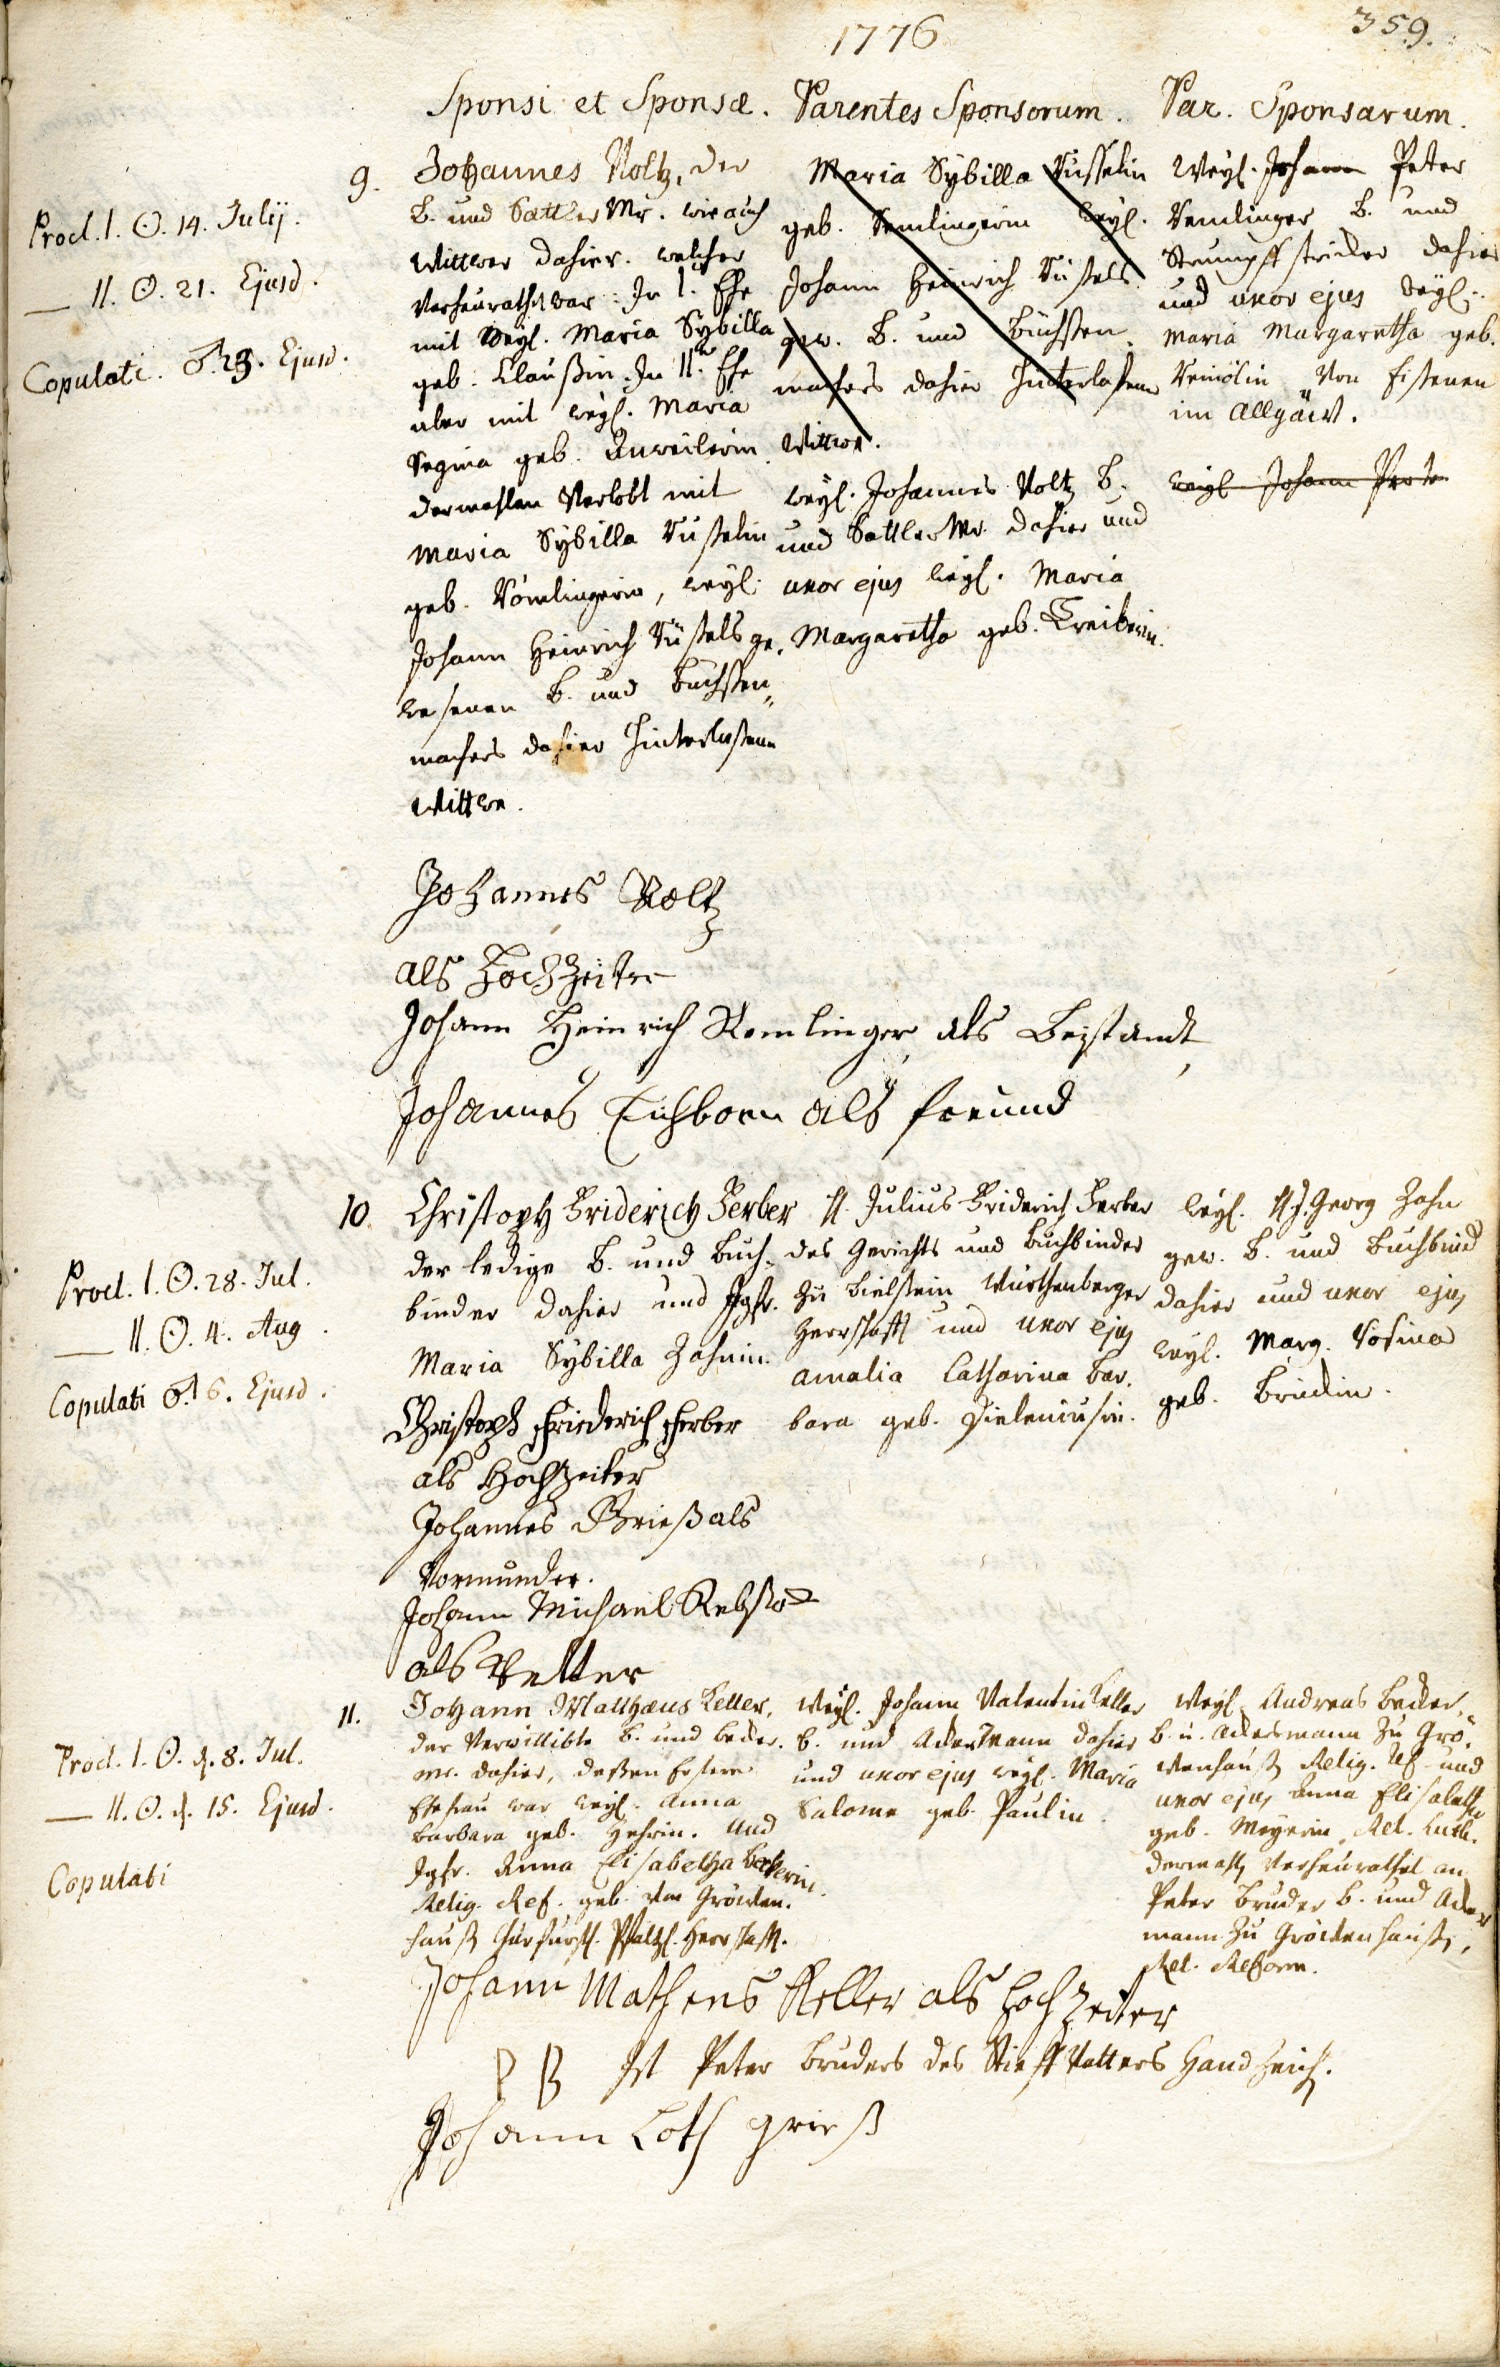 1776
359.
Sponsi et Sponsæ.
Parentes Sponsorum.
Par. Sponsarum.
Procl. I. ☉. 14. Julij.
— II. ☉. 21. Ejusd.
Copulati. ♂. 23. Ejusd.
9.
Johannes Voltz, der
B. und Sattler Mr. wie auch
Wittwer dahier. welcher
Verheurathet war: In I. Ehe
mit Weyl. Maria Sybilla
geb. Claußin. In II.ter Ehe
aber mit weyl. Maria
Regina geb. Anweilerin.
dermahlen Verlobt mit
Maria Sybilla
geb. weyl.
Johann Heinrich ge,
wesenen B. und Büchsen„
machers dahier hinterlaßene
Wittwe.
Maria Sybilla
geb. Remlingerin weyl.
Johann Heinrich
gew. B. und Büchsen„
machers dahier hinterlaßene
Wittwe.
weyl. Johannes Voltz B.
und Sattler Mr. dahier und
uxor ejus weyl. Maria
Margaretha geb. Treiberin.
Weyl. Johann Peter
Remlinger B. und
Strumpffstricker dahier
und uxor ejus weyl.
Maria Margaretha geb.
von
im Allgäu.
weyl. Johann Pete
Johannes Voltz
als Hochzeiter
Johann Heinrich Remlinger als Beistandt
Johannes Eichborn als freund
Procl. I. ☉. 28. Jul.
— II. ☉. 4. Aug.
Copulati ♂. 6. Ejusd.
10.
Christoph Friderich Ferber
der ledige B. und Buch„
binder dahier und Jgfr.
Maria Sybilla Zahnin.
H. Julius Friderich Ferber
des Gerichts und Buchbinder
zu Bielstein Würthenberger
Herrschafft und uxor ejus
Amalia Catharina Bar„
bara geb.
weyl. H. J. Georg Zahn
gew. B. und Buchbind
dahier und uxor ejus
weyl. Marg. Rosina
geb.
Christoph Friederich Ferber
als Hochzeiter
Johannes Grieß als
Vormünder.
Johann Michael Rebstock
als Vetter
Procl. I. ☉. d. 8. Jul.
— II. ☉. d. 15. Ejusd.
Copulati
11.
Johann Matthæus Keller,
der Verwittibte B. und Becker„
Mr. dahier, deßen Erstere
Ehefrau war weyl. Anna
Barbara geb. und
Jgfr. Anna Elisabetha Beckerin.
Relig. Ref. geb. von
hauß Churfürstl. Pfältzl. Herrschafft.
Weyl. Johann Valentin Keller
B. und Ackermann dahier
und uxor ejus weyl. Maria
Salome geb. Paulin.
Weyl. Andreas Becker,
B. u. Ackersmann zu
Relig. Ref. und
uxor ejus Anna Elisabetha
geb. Meyerin, Rel. Luth.
dermahls Verheurathet an
Peter Bruder B. und Acker„
mann zu
Rel. Reform.
Johann Matheus Keller als Hochzeiter
P B Ist Peter Bruders des Stieff Vatters Handzeich.
Johann Loth grieß